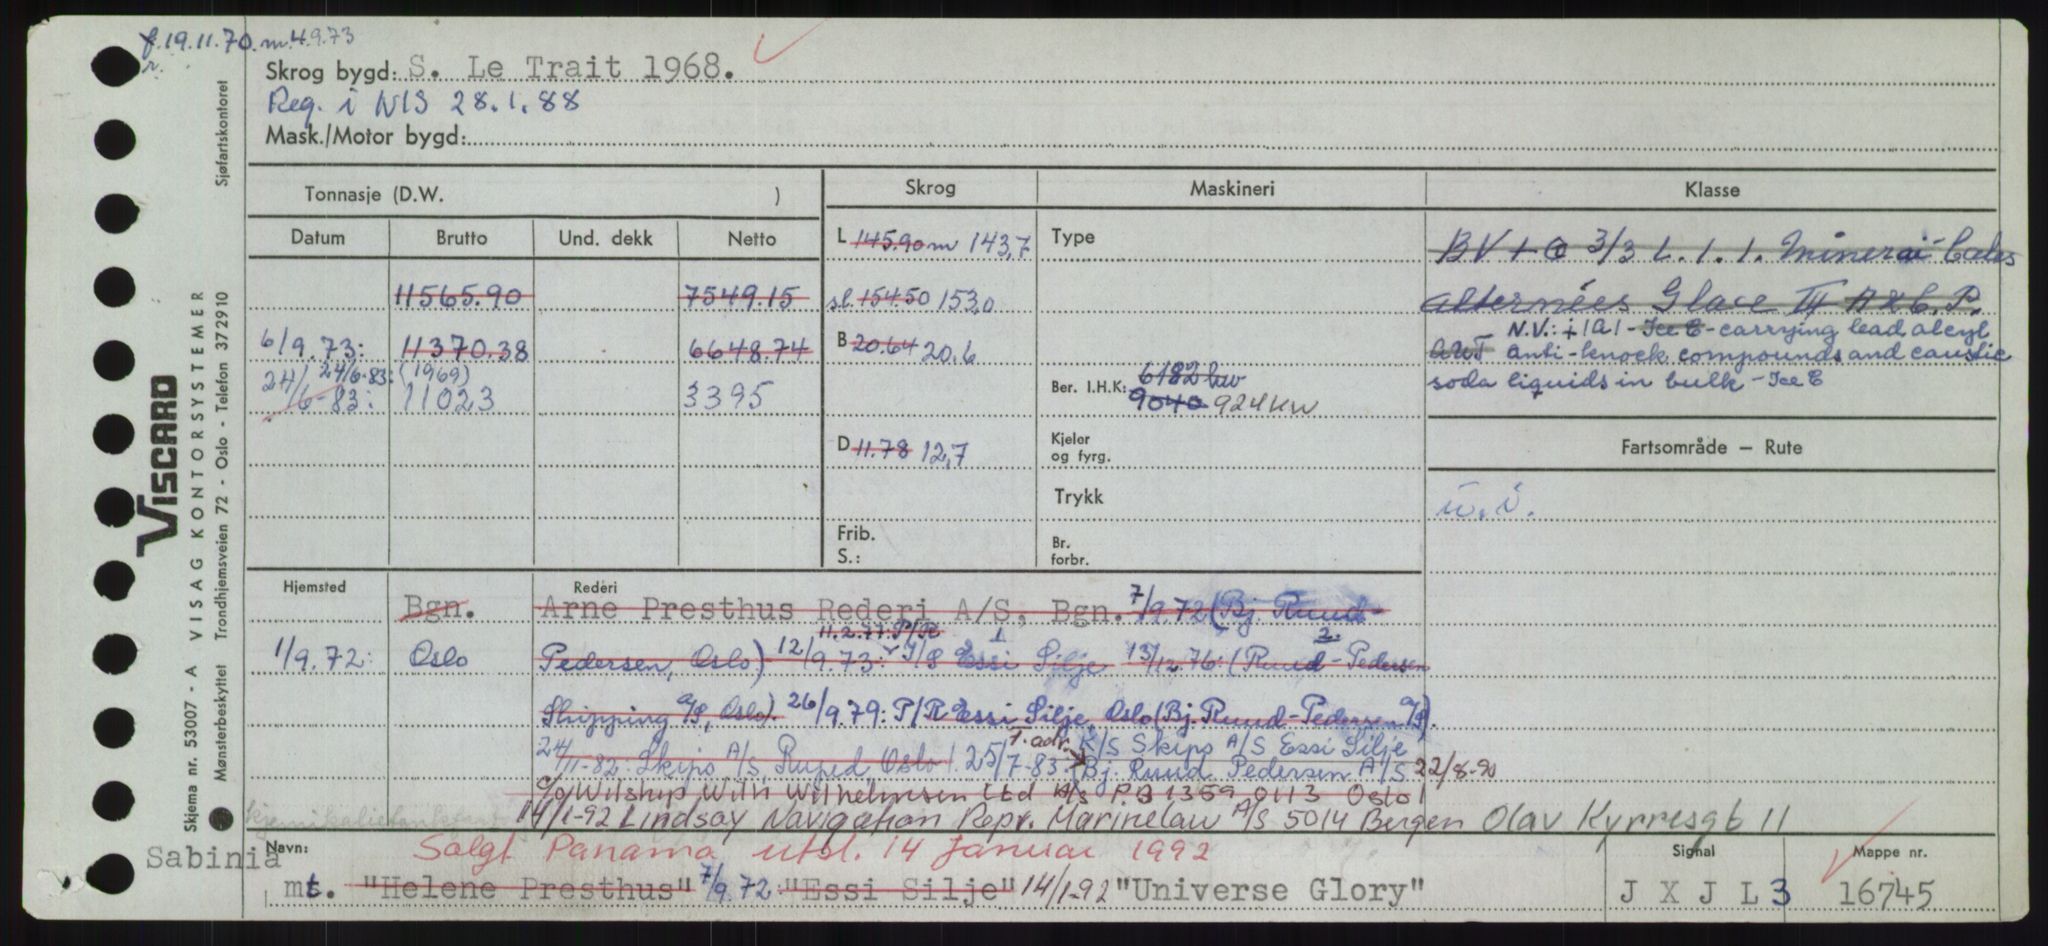 f.19.11.70. m.4.9.73
Skrog bygd: S. Le Trait 1968.
Reg. i NIS 28.1.88
Mask./Motor bygd:
Tonnasje (D.W. )
Skrog
Maskineri
Klasse
Datum Brutto Und. dekk Netto
L 145.90 m 143,7
Type
BV + 3/3 L.1.1. Minerai-Cales
11565.90 7549.15
sl. 154.50 153,0
alternées Glace III A & C.P.
6/9.73: 11370.38 6648.74
B 20.64 20.6
N.V.: + 1A1 - Ice C - carrying lead alcyl
24/6-83: (1969)
anti-knock compounds and caustic
24/6-83: 11023 3395
Ber. I.H.K: 6182 kw
9040 924 KW
soda liquids in bulk - Ice C
D 11.78 12,7
Kjeler og fyrg.
Fartsområde – Rute
Trykk
u.i.
Frib.
S.:
Br. forbr.
Hjemsted
Rederi
Bgn. Arne Presthus Rederi A/S, Bgn. 7/9.72 (Bj. Ruud-
11.2.77: P/R 1 2.
1/9.72: Oslo Pedersen, Oslo) 12/9.73: I/S Essi Silje 13/12.76: (Ruud-Pedersen
Shipping A/S, Oslo). 26/9.79: P/R Essi Silje, Oslo (Bj. Ruud-Pedersen A/S).
1. adr. K/S Skips A/S Essi Silje
24/1-82: Skips A/S Ruped Oslo). 25/7-83: (Bj. Ruud Pedersen A/S 22/8-90
c/o Wilship Wilh Wilhelmsen Ltd A/s P.B 1359 0113 Oslo)
kjemikalietankfart
14/1-92 Lindsay Navigation Repr. Marinelaw A/S 5014 Bergen Olav Kyrresgt 11
Sabinia
Navn: Solgt Panama utsl. 14 Januar 1992
Signal
Mappe nr.
mt. "Helene Presthus" 7/9.72: "Essi Silje" 14/1-92 "Universe Glory"
J X J L 3
16745
VISCARD
VISAG KONTORSYSTEMER
Skjema nr. 53007 - A
Mønsterbeskyttet Trondhjemsveien 72 - Oslo - Telefon 372910 Sjøfartskontoret